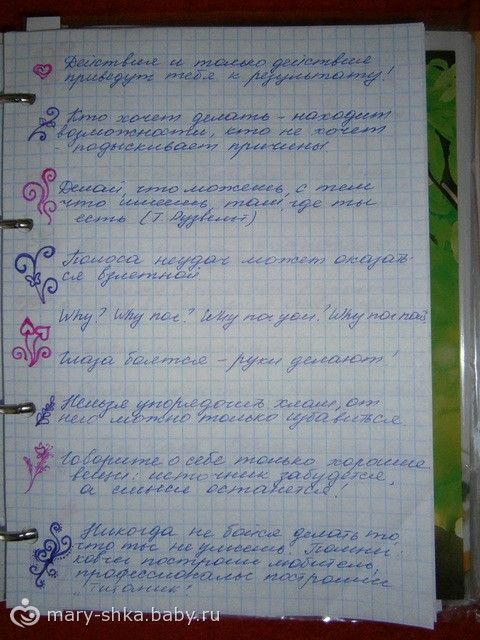 Действия и только действие
приведут тебя к результату!
Кто хочет делать - находит
возможности, кто не хочет
- подыскивает причины
Делай, что можешь, с тем
что имеешь, там, где ты
есть (Т. Рузвельт)
Полоса неудач может оказать-
ся взлетной
Why? Why not? Why not you? Why not now
Глаза боятся - руки делают!
Нельзя упорядочить хлам, от
него можно только избавиться.
Говорите о себе только хорошие
вещи: источник забудется,
а слухи останется!
Никогда не бойся делать то,
что ты не умеешь. Помни
ковчег построил любитель,
профессионалы построили
"Титаник"!
mary-shka.baby.ru